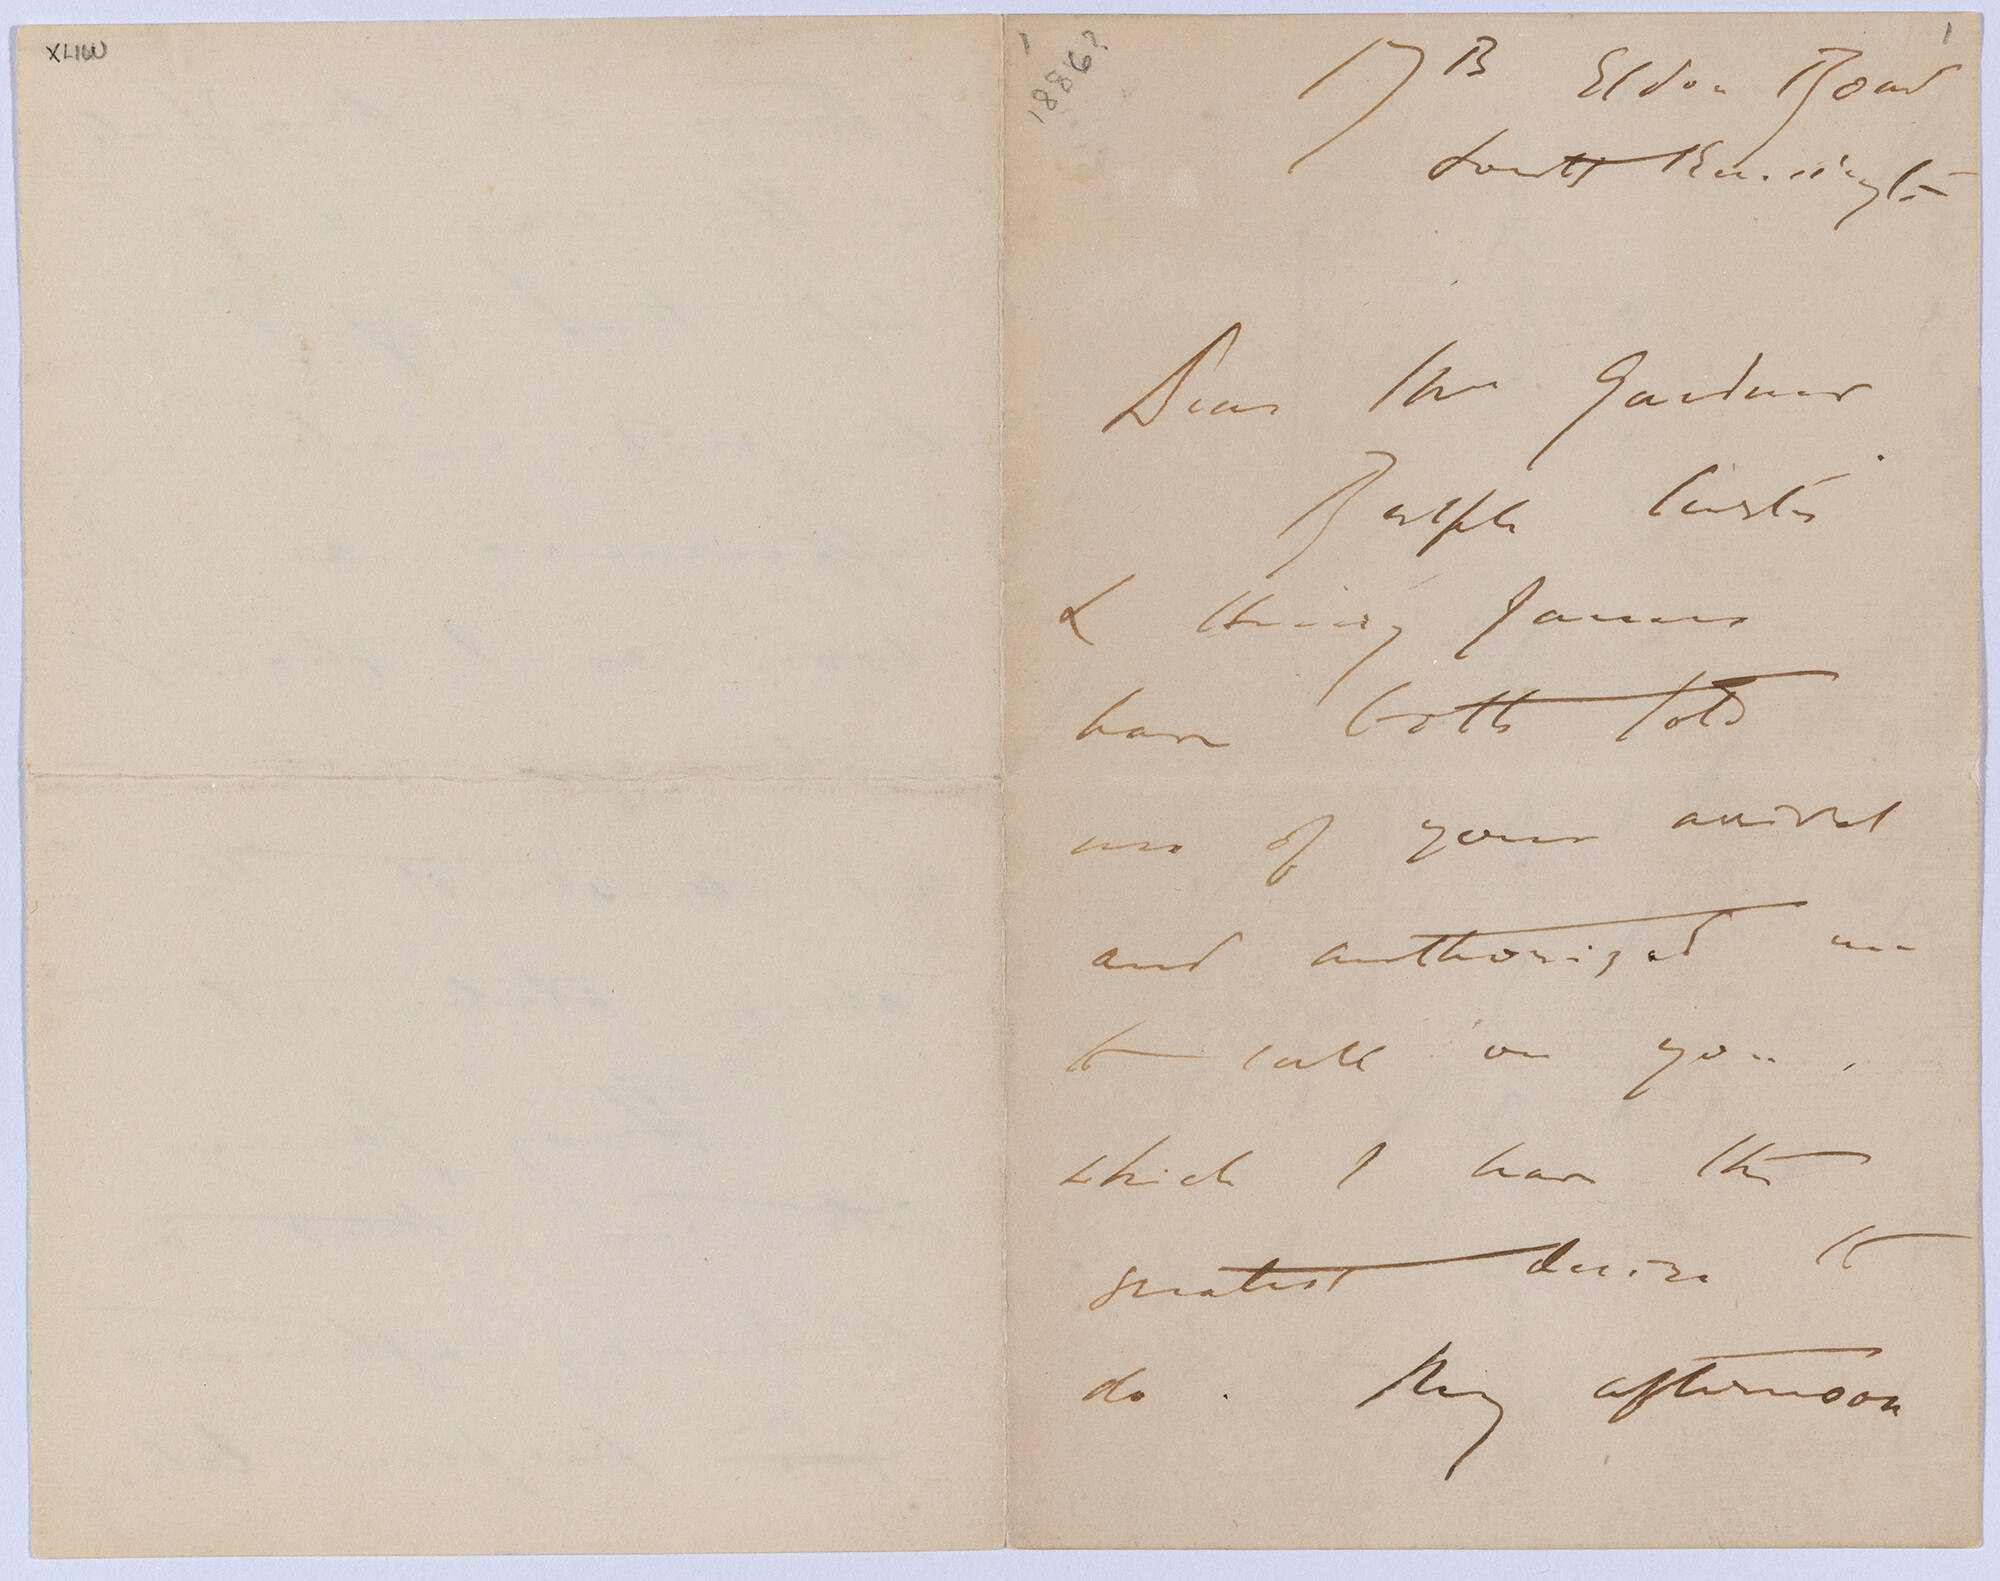 XLIIW
1
1886?
1
17 B Eldon Road
South Kensington
Dear Mrs Gardner.
Ralph Curtis
& Henry James
have both told
me of your arrival
and authorized me
to call on you,
which I have the
greatest desire to
do. My afternoon